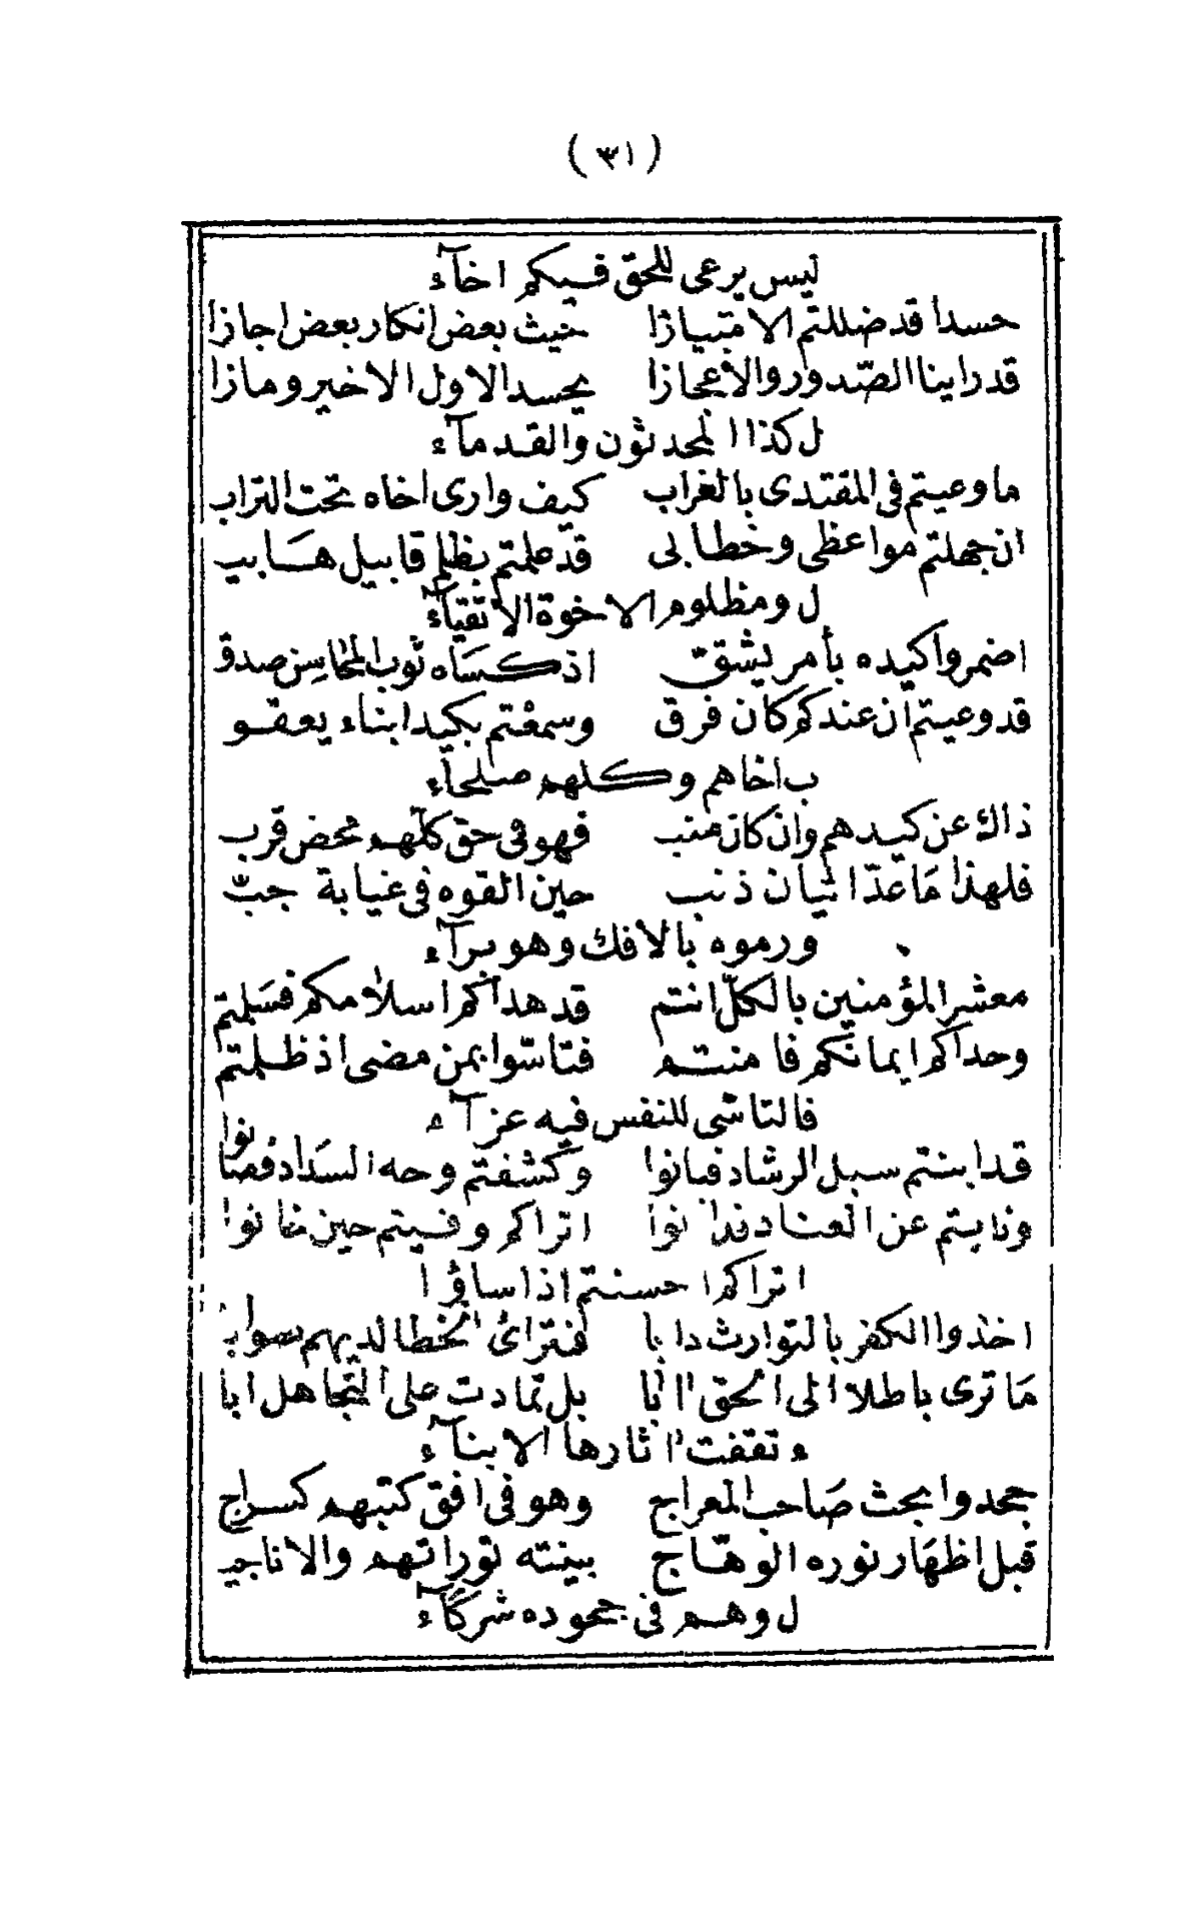 (٣١)
ليس يرعى للحق فيكم اخآء
حسدا قد ضللتم الامتيازا حيث بعض انكار بعض اجازا
قد راينا الصّدور والأعجازا يحسد الاول الاخير ومازا
ل كذا المحدثون والقدمآء
ما وعيتم فى المقتدى بالغراب كيف وارى اخاه تحت التراب
ان جهلتم مواعظى وخطابى قد علمتم بظلم قابيل هابيـ
ل ومظلوم الاخوة الاتقيآء
اضمروا كيده بأمر يشقّ اذ كساه ثوب المحاسن صدق
قد وعيتم ان عندكم كان فرق وسمعتم بكيد ابناء يعقو
ب اخاهم وكلهم صلحآء
ذاك عن كيدهم وان كان منب فهو فى حق كلّهم محض قرب
فلهذا ما عدّ اثيان ذنب حين القوه فى غيابة جبّ
ورموه بالافك وهو برآء
معشر المؤمنين بالكلّ انتم قد هداكم اسلامكم فسلمتم
وحداكم ايمانكم فامنتم فتاسّوا بمن مضى اذ ظلمتم
فالتاسّى للنفس فيه عزآء
قد ابنتم سبل الرشاد فبانوا وكشفتم وجه السداد فصانوا
ونايتم عن العناد فدانوا اتراكم وفيتم حين خانوا
اتراكم احسنتم اذ اساؤا
اخذوا الكفر بالتوارث دابا فترائ الخطا لديهم صوابا
ما ترى باطلا الى الحق اابا بل تمادت على التجاهل ابا
ء تقفت اثارها الابنآء
جحدوا بحث صاحب المعراج وهو فى افق كتبهم كسراج
قبل اظهار نوره الوهّاج بينته توراتهم والاناجيـ
ل وهم فى جحوده شركآء